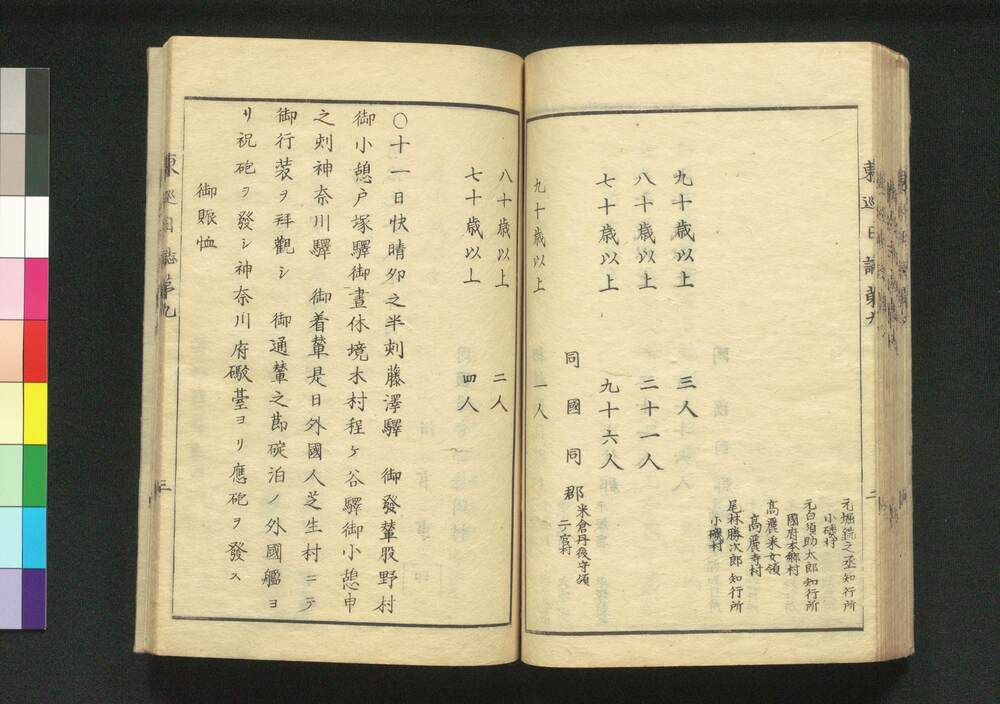 元堀鉃之丞知行所
小磯村
元白須助太郎知行所
國府本郷村
高麗采女領
高麗寺村
尾林勝次郎知行所
小磯村
九十歳以上 三人
八十歳以上 二十一人
七十歳以上 九十六人
同國同郡
米倉丹後守領
二ノ宮村
九十歳以上 一人
八十歳以上 二人
七十歳以上 四人
〇十一日快晴夘之半刻藤澤驛 御發輦股野村
御小憩戸塚驛御晝休境木村程ヶ谷驛御小憩申
之刻神奈川驛 御着輦是日外國人芝生村ニテ
御行装ヲ拜觀シ 御通輦之節碇泊ノ外國艦ヨ
リ祝砲ヲ發シ神奈川府礮臺ヨリ應砲ヲ發ス
御賑恤
東巡日誌第九
三